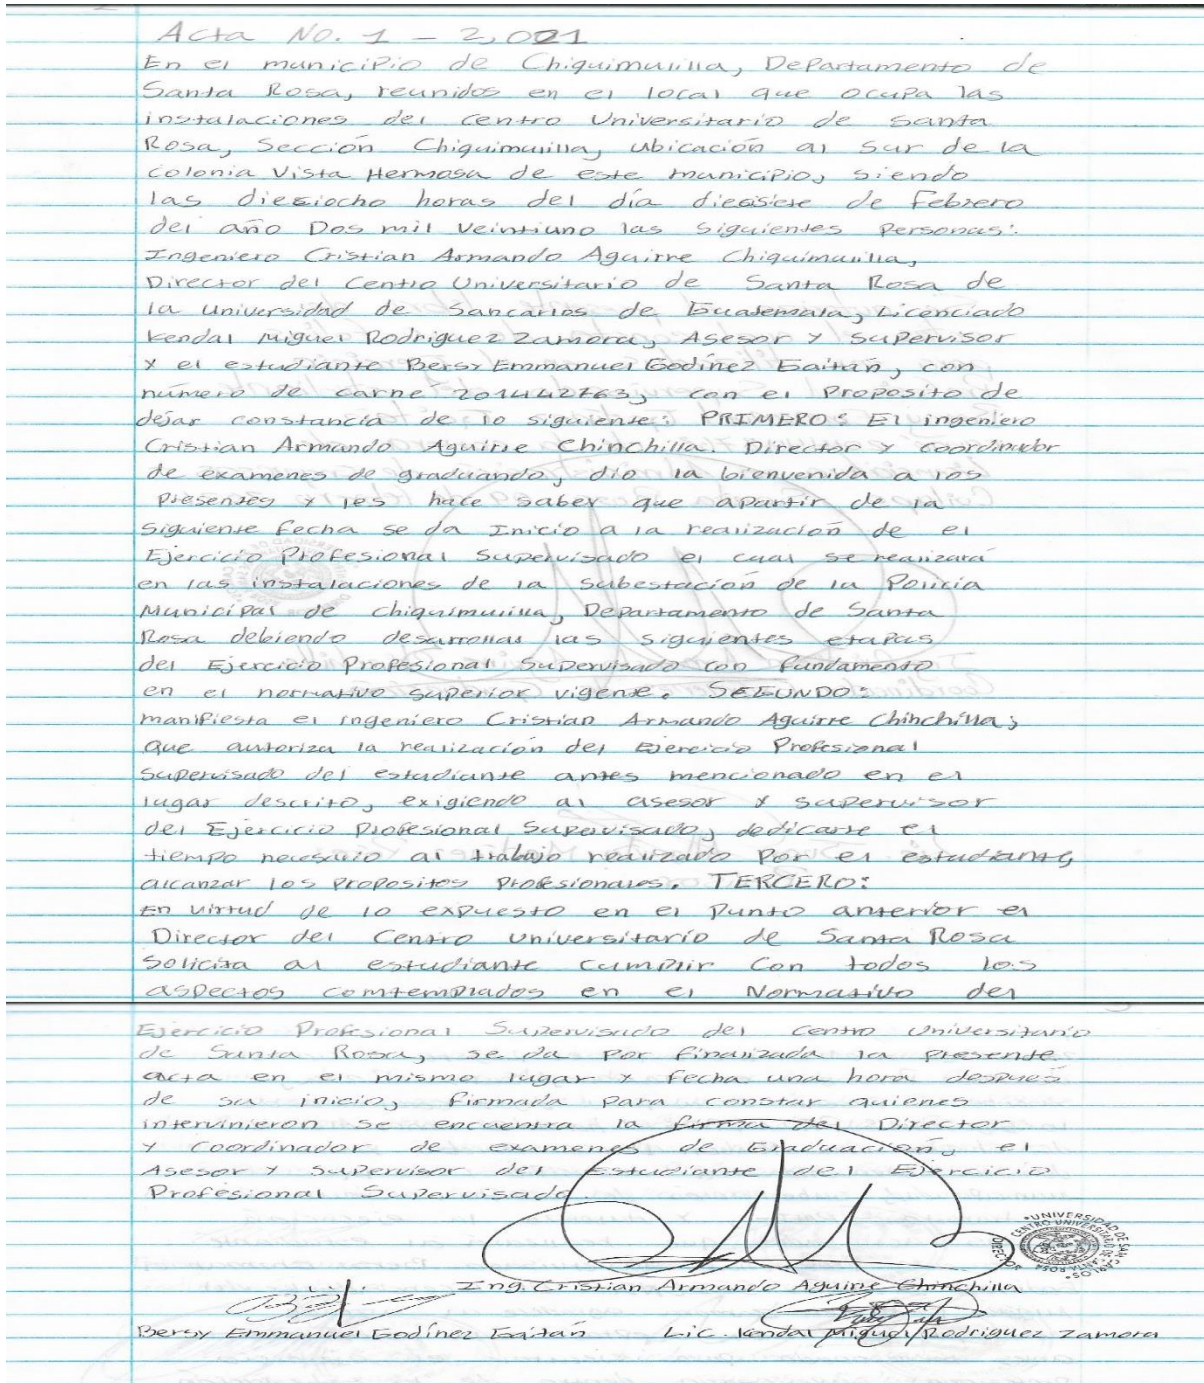 Acta No. 1 - 2,021
En el municipio de Chiquimulilla, Departamento de
Santa Rosa, reunidos en el local que ocupa las
instalaciones del Centro Universitario de Santa
Rosa, Sección Chiquimulilla, ubicación al sur de la
Colonia Vista Hermosa de este municipio, siendo
las dieciocho horas del día diecisiete de Febrero
del año Dos mil Veintiuno las siguientes Personas:
Ingeniero Cristian Armando Aguirre Chiquimulilla,
Director del Centro Universitario de Santa Rosa de
la Universidad de Sancarlos de Guatemala, Licenciado
Kendal Miguel Rodriguez Zamora, Asesor y Supervisor
y el estudiante Bersy Emmanuel Godínez Gaitán, con
número de carne 201442763, con el Proposito de
dejar constancia de lo siguiente: PRIMERO: El ingeniero
Cristian Armando Aguirre Chinchilla. Director y coordinador
de examenes de graduando, dio la bienvenida a los
Presentes y les hace saber que apartir de la
siguiente fecha se da Inicio a la realización de el
Ejercicio Profesional Supervisado el cual se realizará
en las instalaciones de la Subestación de la Policia
Municipal de Chiquimulilla, Departamento de Santa
Rosa debiendo desarrollar las siguientes etapas
del Ejercicio Profesional Supervisado con fundamento
en el normativo superior vigente. SEGUNDO:
manifiesta el ingeniero Cristian Armando Aguirre Chinchilla;
que autoriza la realización del Ejercicio Profesional
Supervisado del estudiante antes mencionado en el
lugar descrito, exigiendo al asesor y supervisor
del Ejercicio Profesional Supervisado, dedicarse el
tiempo necesario al trabajo realizado Por el estudiante,
alcanzar los Propositos Profesionales. TERCERO:
En virtud de lo expuesto en el Punto anterior el
Director del Centro Universitario de Santa Rosa
Solicita al estudiante cumplir Con todos los
aspectos comtemplados en el Normativo del
Ejercicio Profesional Supervisado del Centro Universitario
de Santa Rosa, se da por finalizada la presente
acta en el mismo lugar y fecha una hora después
de su inicio, firmada para constar quienes
intervinieron se encuentra la firma del Director
y Coordinador de examenes de Graduación, el
Asesor y Supervisor del Estudiante del Ejercicio
Profesional Supervisado.
UNIVERSIDAD DE SAN CARLOS
CENTRO UNIVERSITARIO DE SANTA ROSA
DIRECTOR
Ing. Cristian Armando Aguirre Chinchilla
Bersy Emmanuel Godínez Gaitán Lic. Kendal Miguel Rodriguez Zamora